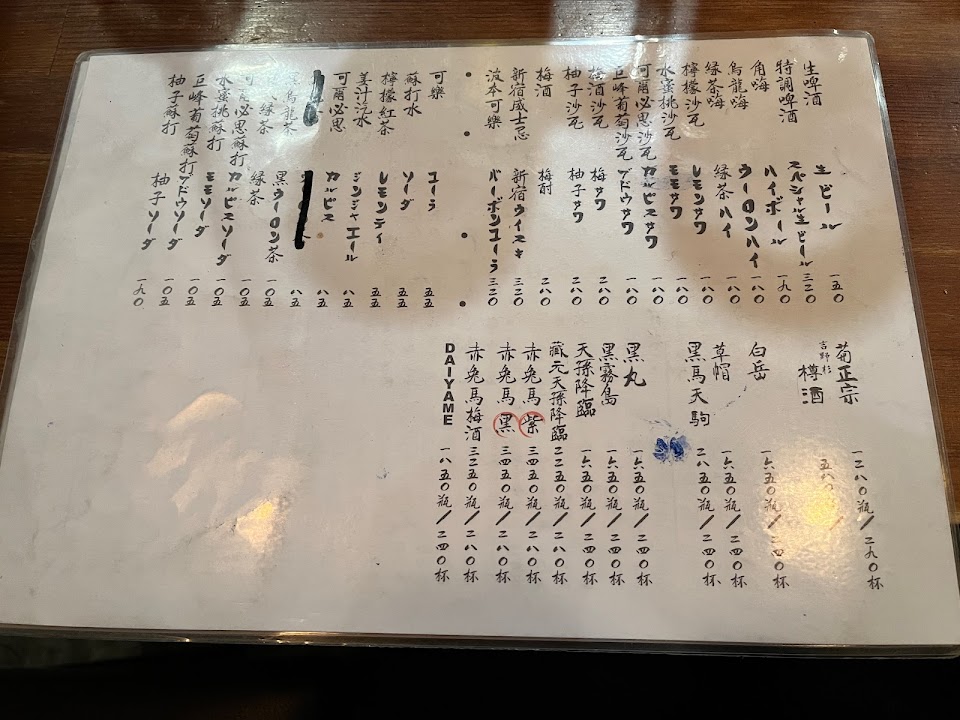 生啤酒 生ビール 一五〇
特調啤酒 スペシャル生ビール 三二〇
角嗨 ハイボール 一九〇
烏龍嗨 ウーロンハイ 一八〇
緑茶嗨 緑茶ハイ 一八〇
檸檬沙瓦 レモンサワ 一八〇
水蜜桃沙瓦 モモサワ 一八〇
可爾必思沙瓦 カルピスサワ 一八〇
巨峰葡萄沙瓦 ブドウサワ 一八〇
梅酒沙瓦 梅サワ 二八〇
柚子沙瓦 柚子サワ 二八〇
梅酒 梅酎 二八〇
新宿威士忌 新宿ウイスキ 三二〇
波本可樂 バーボンコーラ 三二〇
可樂 コーラ 五五
蘇打水 ソーダ 五五
檸檬紅茶 レモンティ 五五
姜汁汽水 ジンジャエール 八五
可爾必思 カルピス 八五
八五
烏龍茶 黒ウーロン茶 一〇五
緑茶 緑茶 一〇五
必思蘇打 カルピスソーダ 一〇五
水蜜桃蘇打 モモソーダ 一〇五
巨峰葡萄蘇打 ブドウソーダ 一〇五
柚子蘇打 柚子ソーダ 一九〇
菊正宗 一二八〇瓶/二九〇杯
吉野杉 樽酒
白岳 一六五〇瓶/二四〇杯
草帽 一六五〇瓶/二四〇杯
黑馬天駒 二八五〇瓶/二四〇杯
黑丸 一六五〇瓶/二四〇杯
黑霧島 一六五〇瓶/二四〇杯
天孫降臨 一六五〇瓶/二四〇杯
藏元天孫降臨 二二五〇瓶/二八〇杯
赤兔馬 紫 三四五〇瓶/二八〇杯
赤兔馬 黑 三四五〇瓶/二八〇杯
赤兔馬梅酒 三二五〇瓶/二八〇杯
DAIYAME 一八五〇瓶/二四〇杯